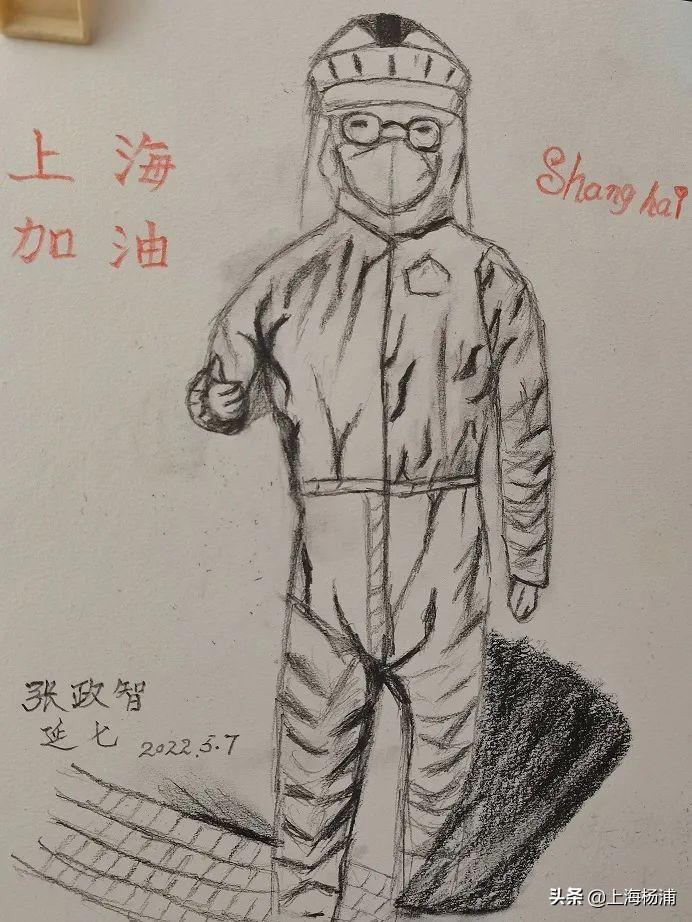 上海
加油
Shanghai
张政智
延七
2022.5.7
头条 @上海杨浦